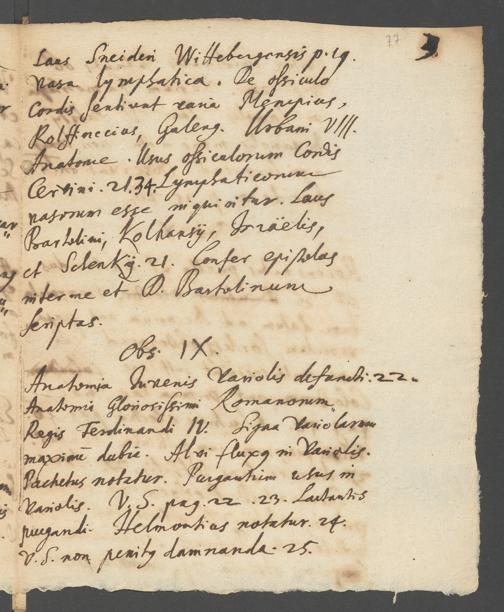 77
Laus Sneideri Wittebergensis p. 19.
vasa lymphatica. De ossiculo
Cordis sentiunt varia Mempius,
Rolffinccius, Galeng. Urbani VIII.
Anatome. Usus ossiculorum Cordis
Cervini. 21.34. Lymphaticorum
vasorum esse inquiritur. Laus
Bartolini, Kolhansij, Israëlis,
et Sclenkij. 21. Confer epistolas
inter me et D. Bartolinum
scriptas.
Obs. IX.
Anatomia Juvenis Variolis defuncti. 22.
Anatomia Gloriosissimi Romanorum
Regis Ferdinandi IV. Signa Variolarum
maximè dubia. Alvi fluxq in Variolis.
Pachetus notatur. Purgantium usus in
Variolis. V.S. pag. 22. 23. Lactantis
purgandi. Helmontius notatur. 24.
V.S. non penitq damnanda. 25.